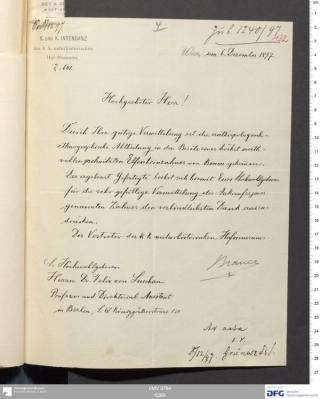 K. und K. INTENDANZ
des k. k. naturhistorischen
Hof-Museums.
Z. 602.
Zu E 1240/97
Wien, am 6. December 1897.
Hochgeehrter Herr!
Durch Ihre gütige Vermittelung ist die anthropologisch-
ethnographische Abtheilung in den Besitz eines höchst werth-
vollen geschnitzten Elfenbeinzahnes von Benin gekommen.
Der ergebenst Gefertigte beehrt sich hiermit Euer Hochwohlgeboren
für die sehr gefällige Vermittelung des
genannten Zahnes den verbindlichsten Dank auszu-
drücken.
Der Vertreter des k. k. naturhistorischen Hofmuseums:
Sr. Hochwohlgeboren
Herrn Dr. Felix von Luschan
Professor und Directorial Assistent
in Berlin, S.W. Königgrätzerstrasse 120
Ad acta
Grünwedel
DFG